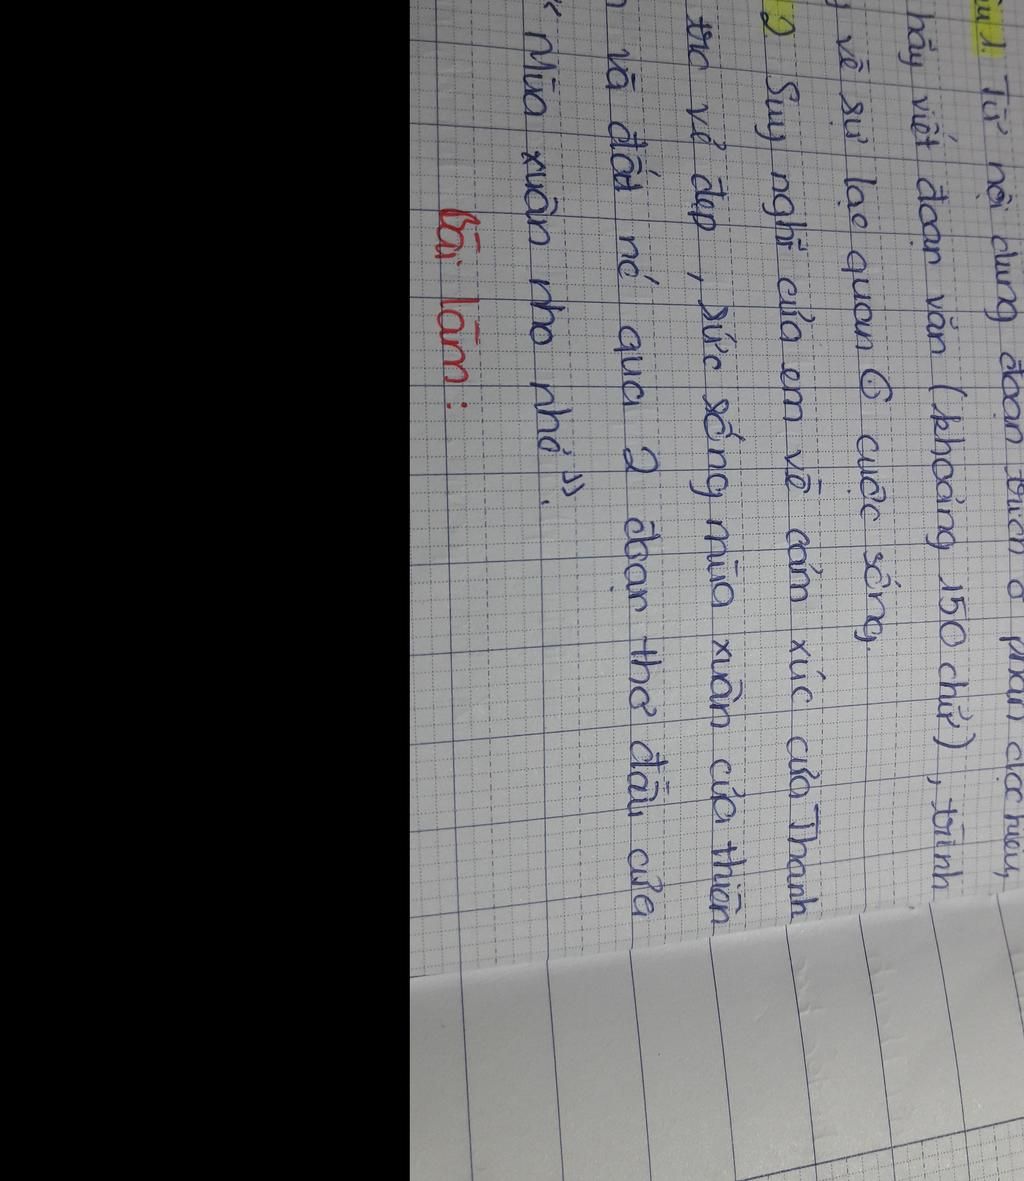 1. Từ nội dung đoạn trích ở phần đọc hiểu,
hãy viết đoạn văn (khoảng 150 chữ), trình
về sự lạc quan ⓒ cuộc sống.
2 Suy nghĩ của em về cảm xúc của Thanh
trc vẻ đẹp, sức sống mùa xuân của thiên
và đất nc qua 2 đoạn thơ đầu của
"Mùa xuân nho nhỏ".
Bài làm: